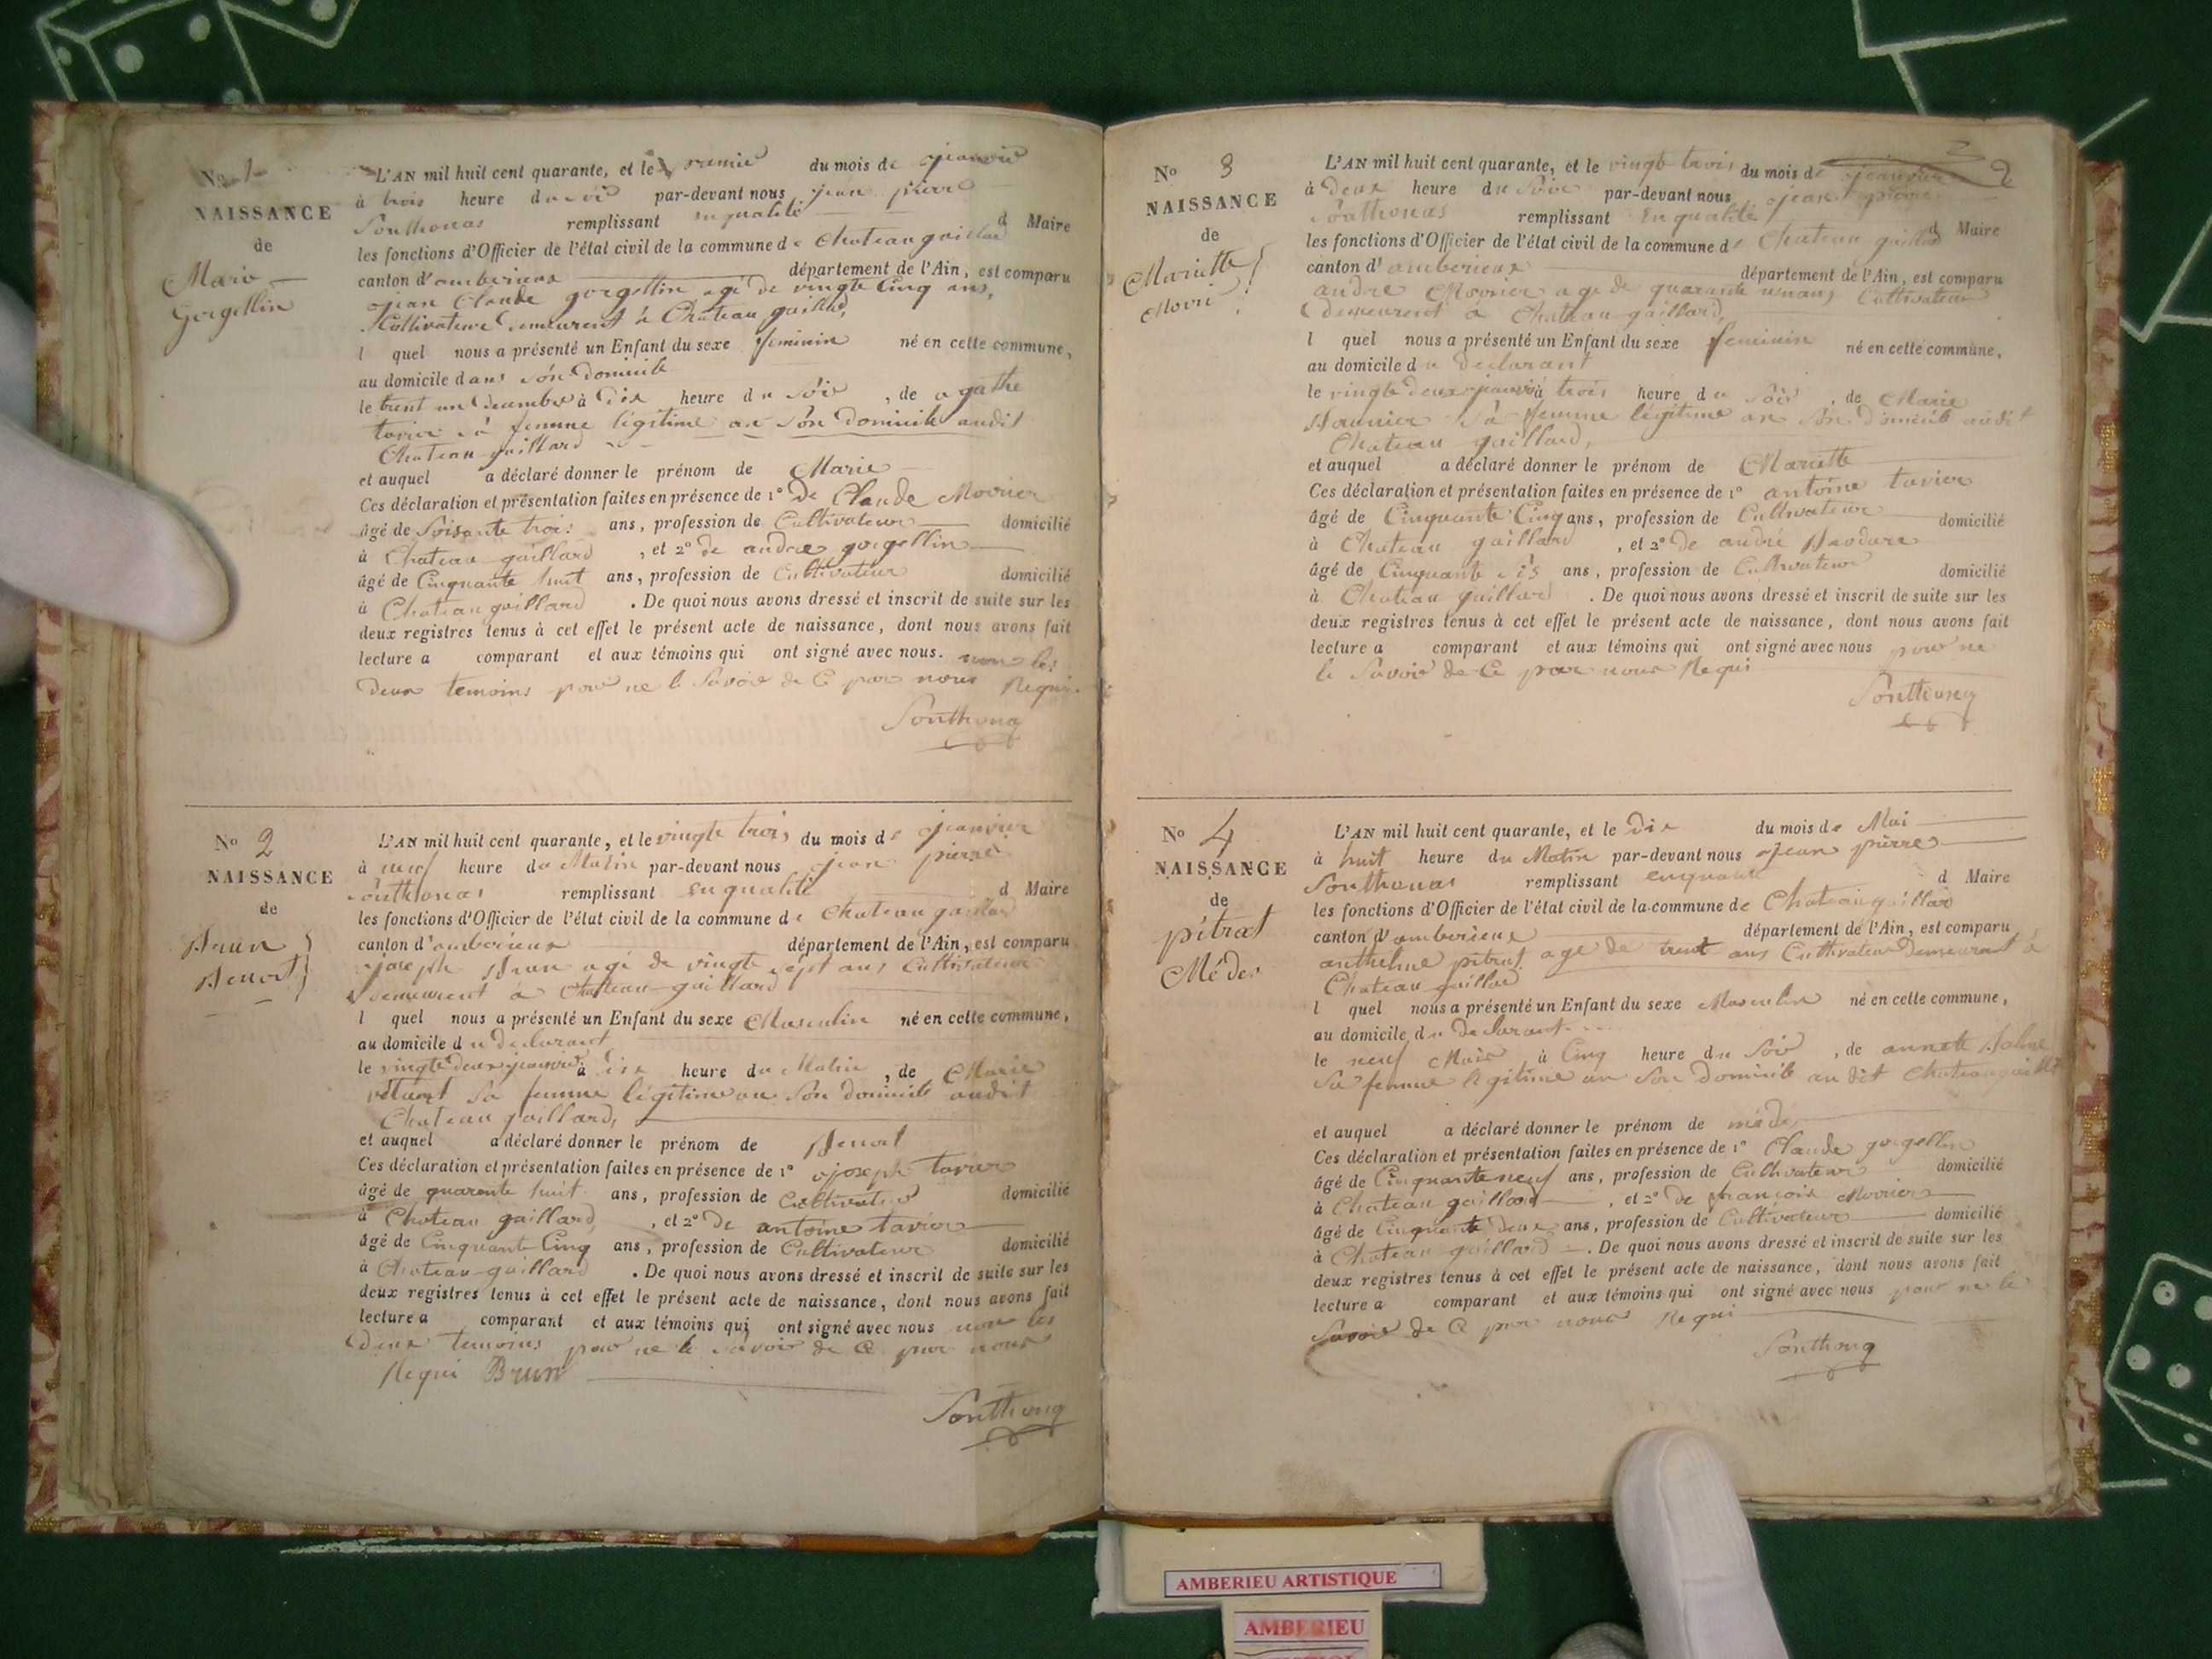 No 1
NAISSANCE
de
Marie
Gorgellin
L'AN mil huit cent quarante, et le premier du mois de janvier
à trois heure du soir par-devant nous jean pierre
Sonthonas remplissant en qualité d Maire
les fonctions d'Officier de l'état civil de la commune de Chateau gaillard
canton d'amberieux département de l'Ain, est comparu
jean Claude gorgellin agé de vingte Cinq ans,
Cultivateur demeurent à Chateau gaillard,
l quel nous a présenté un Enfant du sexe feminin né en cette commune,
au domicile dans son Domicile
le trent un decembre à dix heure du Soir, de agathe
tavier sa femme légitime an son domicile audit
Chateau gaillard
et auquel a déclaré donner le prénom de Marie
Ces déclaration et présentation faites en présence de 1° De Claude Movrier
âgé de Soisente trois ans, profession de Cultivateur domicilié
à Chateau gaillard, et 2° de andre gorgellin
âgé de Cinquante huit ans, profession de Cultivateur domicilié
à Chateau gaillard. De quoi nous avons dressé et inscrit de suite sur les
deux registres tenus à cet effet le présent acte de naissance, dont nous avons fait
lecture a comparant et aux témoins qui ont signé avec nous. non les
deux temoins pour ne le Savoir de Ce par nous Requi
Sonthonas
No 2
NAISSANCE
de
Brun
Benoit
L'AN mil huit cent quarante, et le vingte trois du mois de janvier
à neuf heure du Matin par-devant nous jean pierre
Sonthonas remplissant en qualité d Maire
les fonctions d'Officier de l'état civil de la commune de Chateau gaillard
canton d'amberieux département de l'Ain, est comparu
joseph Brun agé de vingte sept ans Cultivateur
demeurent à Chateau gaillard
l quel nous a présenté un Enfant du sexe Masculin né en cette commune,
au domicile du declarant
le vingte deux janvier à dix heure du Matin, de Marie
sa femme légitime an Son domicile audit
Chateau gaillard,
et auquel a déclaré donner le prénom de Benoit
Ces déclaration et présentation faites en présence de 1° joseph tavier
âgé de quarente huit ans, profession de Cultivateur domicilié
à Chateau gaillard, et 2° De antoine tavier
âgé de Cinquante Cinq ans, profession de Cultivateur domicilié
à Chateau gaillard. De quoi nous avons dressé et inscrit de suite sur les
deux registres tenus à cet effet le présent acte de naissance, dont nous avons fait
lecture a comparant et aux témoins qui ont signé avec nous non les
deux temoins pour ne le Savoir de Ce par nous
Requi Brun
Sonthonas
2
No 3
NAISSANCE
de
Mariette
Movrié
L'AN mil huit cent quarante, et le vingt trois du mois de janvier
à deux heure du Soir par-devant nous jean pierre
Sonthonas remplissant En qualité d Maire
les fonctions d'Officier de l'état civil de la commune de Chateau gaillard
canton d'amberieux département de l'Ain, est comparu
andre Movrier agé de quarante un ans Cultivateur
demeurent à Chateau gaillard,
l quel nous a présenté un Enfant du sexe feminin né en cette commune,
au domicile du declarant
le vingte deux janvier à trois heure du Soir, de Marie
sa femme légitime an Son domicile audit
Chateau gaillard,
et auquel a déclaré donner le prénom de Mariette
Ces déclaration et présentation faites en présence de 1° antoine tavier
âgé de Cinquante Cinq ans, profession de Cultivateur domicilié
à Chateau gaillard, et 2° De andré
âgé de Cinquante ans, profession de Cultivateur domicilié
à Chateau gaillard. De quoi nous avons dressé et inscrit de suite sur les
deux registres tenus à cet effet le présent acte de naissance, dont nous avons fait
lecture a comparant et aux témoins qui ont signé avec nous pour ne
le Savoir de Ce par nous Requi
Sonthonas
No 4
NAISSANCE
de
pitrat
Médes
L'AN mil huit cent quarante, et le Dix du mois de Mai
à huit heure du Matin par-devant nous jean pierre
Sonthonas remplissant en qualité d Maire
les fonctions d'Officier de l'état civil de la commune de Chateau gaillard
canton d'amberieux département de l'Ain, est comparu
anthelme pitrat age de trent ans Cultivateur demeurant à
Chateau gaillard
l quel nous a présenté un Enfant du sexe Masculin né en cette commune,
au domicile du declarant
le neuf Mais à Cinq heure du Soir, de annette
Sa femme légitime an Son domicile au dit Chateau gaillard
et auquel a déclaré donner le prénom de médes
Ces déclaration et présentation faites en présence de 1° Claude gorgellin
âgé de Cinquante neuf ans, profession de Cultivateur domicilié
à Chateau gaillard, et 2° De françois Movrier
âgé de Cinquante deux ans, profession de Cultivateur domicilié
à Chateau gaillard. De quoi nous avons dressé et inscrit de suite sur les
deux registres tenus à cet effet le présent acte de naissance, dont nous avons fait
lecture a comparant et aux témoins qui ont signé avec nous pour ne le
Savoir de Ce par nous Requi
Sonthonas
AMBERIEU ARTISTIQUE
AMBERIEU